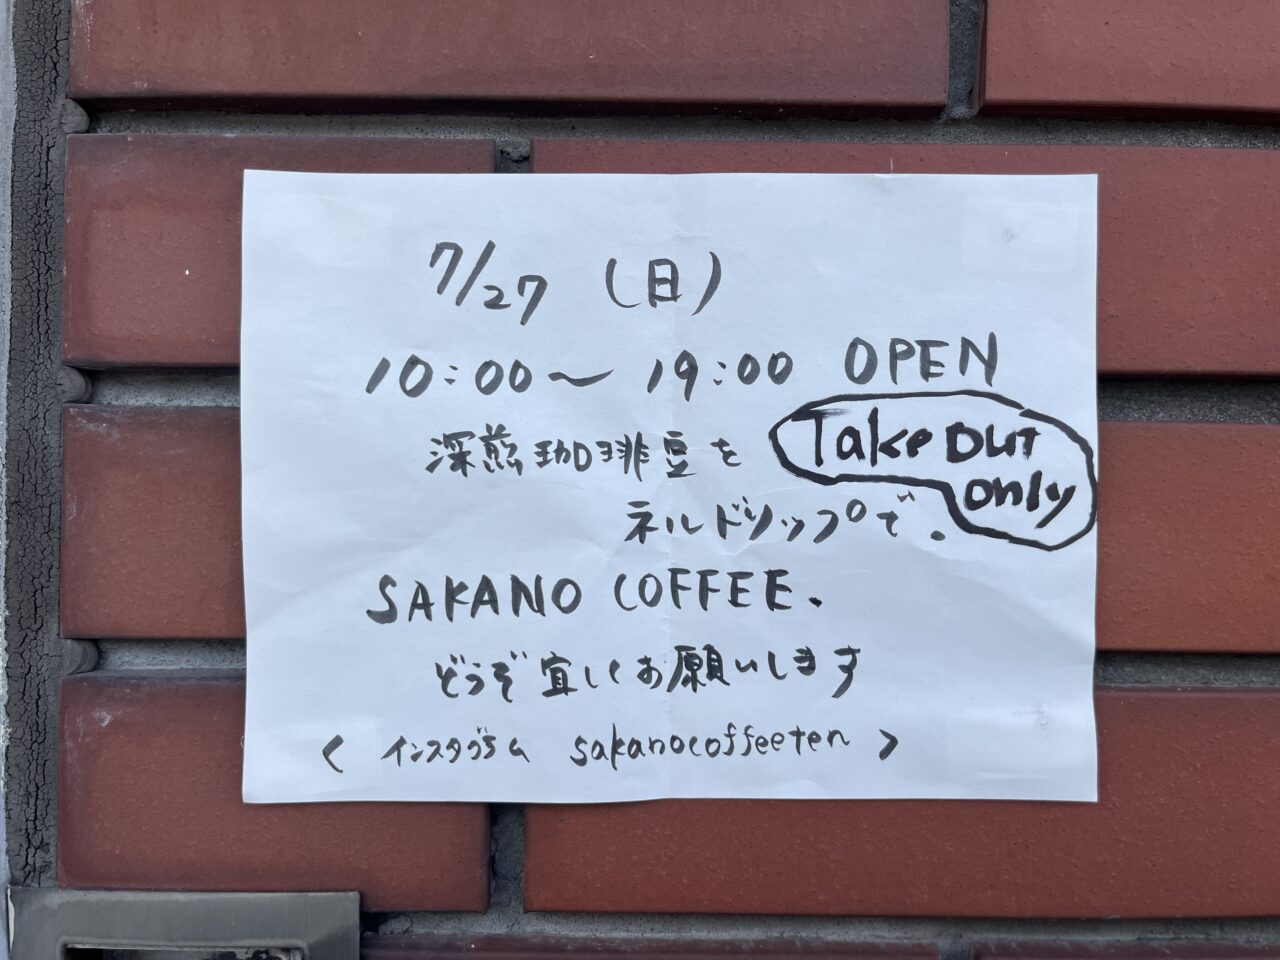 7/27 (日)
10:00〜19:00 OPEN
深煎珈琲豆を
Take out
only
ネルドリップで.
SAKANO COFFEE.
どうぞ宜しくお願いします
< インスタグラム sakanocoffeeten >